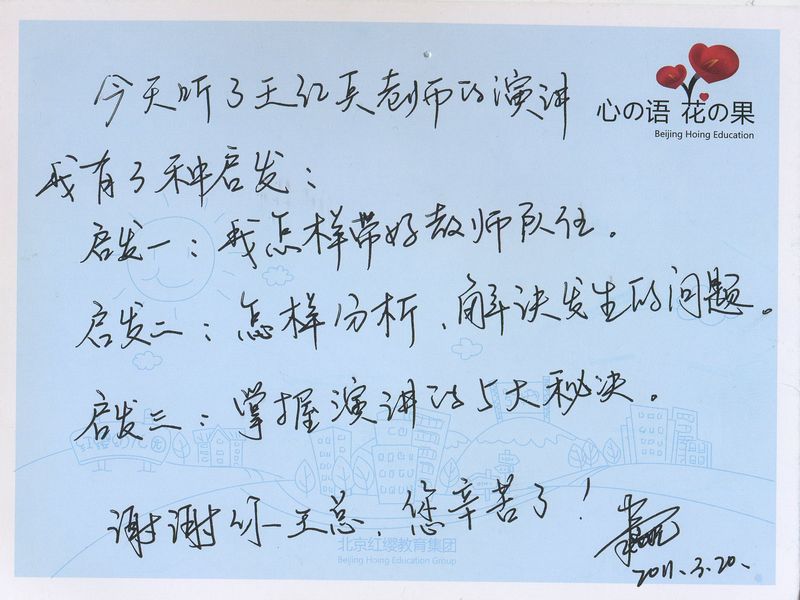 今天听了王红兵老师的演讲
心の语 花の果
Beijing Hoing Education
我有3种启发：
启发一：我怎样带好教师队伍。
启发二：怎样分析、解决发生的问题。
启发三：掌握演讲的5大秘决。
红缨幼儿园
谢谢你王总，您辛苦了！
北京红缨教育集团
Beijing Hoing Education Group
2011.3.20.